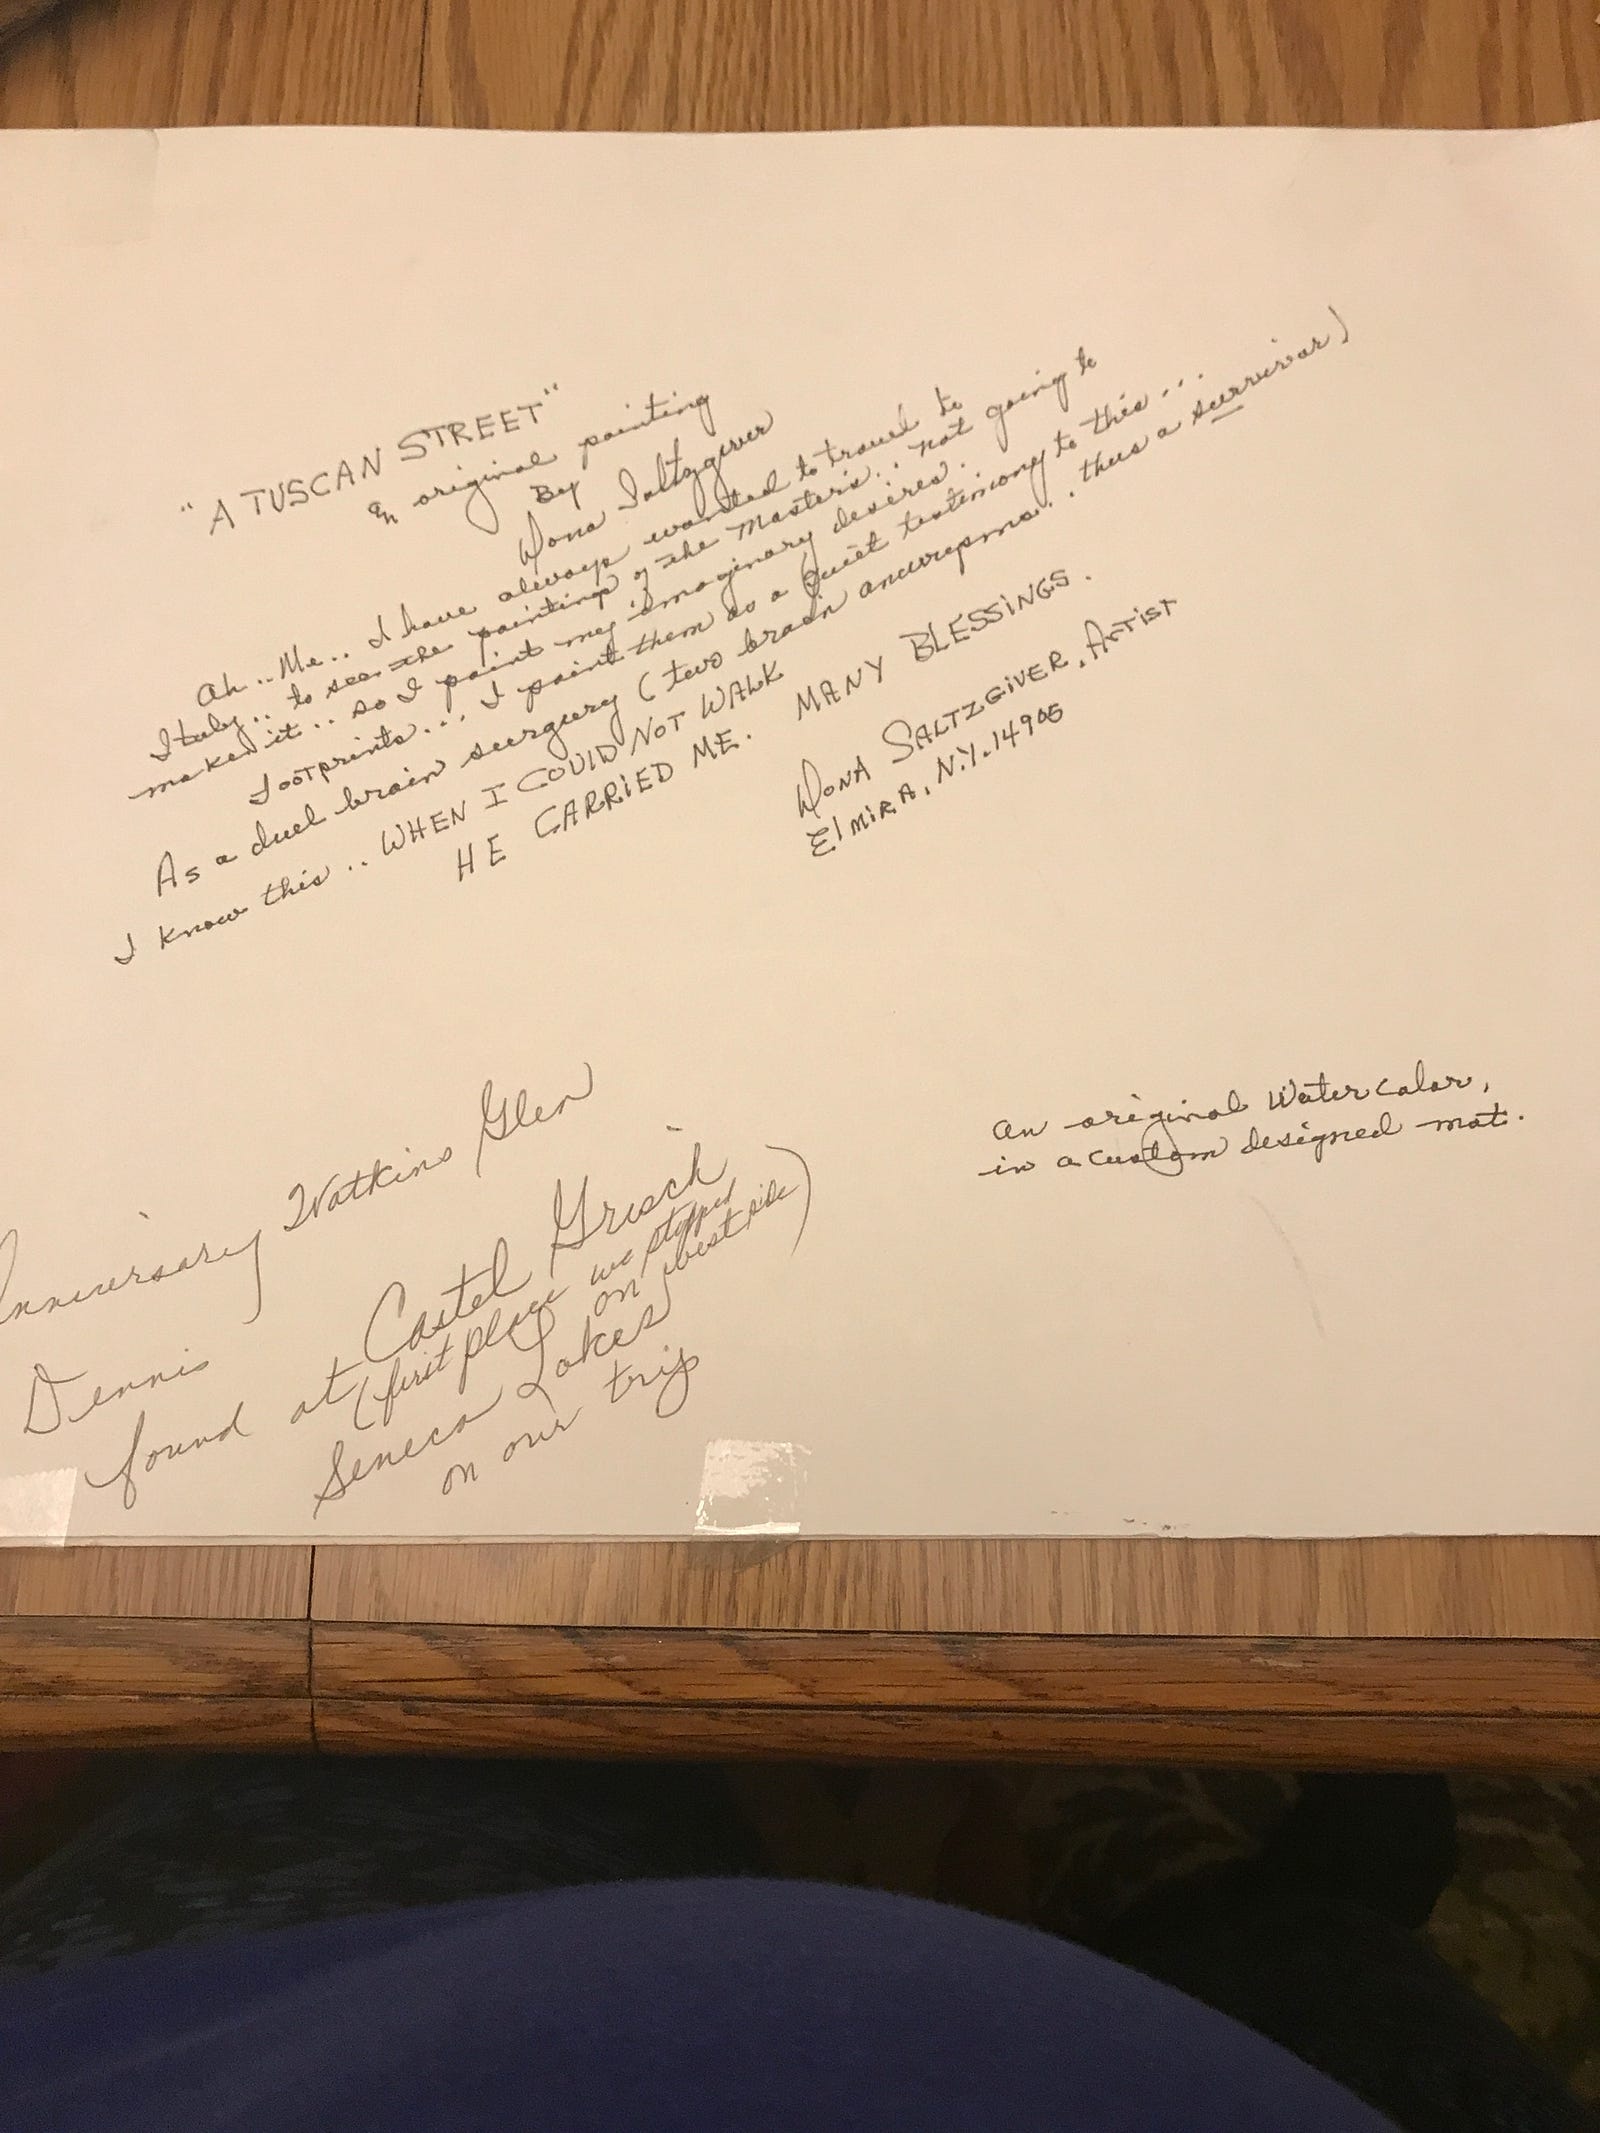 "A TUSCAN STREET"
an original painting
By
Dona Saltzgiver
Ah .. Me .. I have always wanted to travel to
Italy .. to see the paintings of the Masters .. not going to
make it .. so I paint my imaginary desires .
footprints ... I paint them as a quiet testimony to this ...
As a duel brain surgery (two brain anurepma .. thus a survivor)
I know this .. WHEN I COULD NOT WALK
HE CARRIED ME. MANY BLESSINGS.
DONA SALTZGIVER, ARTIST
ElmIRA, N.Y. 14905
an original Watercolor,
in a custom designed mat.
Anniversary Watkins Glen
Dennis
found at Castel Grisch
(first place we stopped
on west side)
Seneca Lakes
on our trip